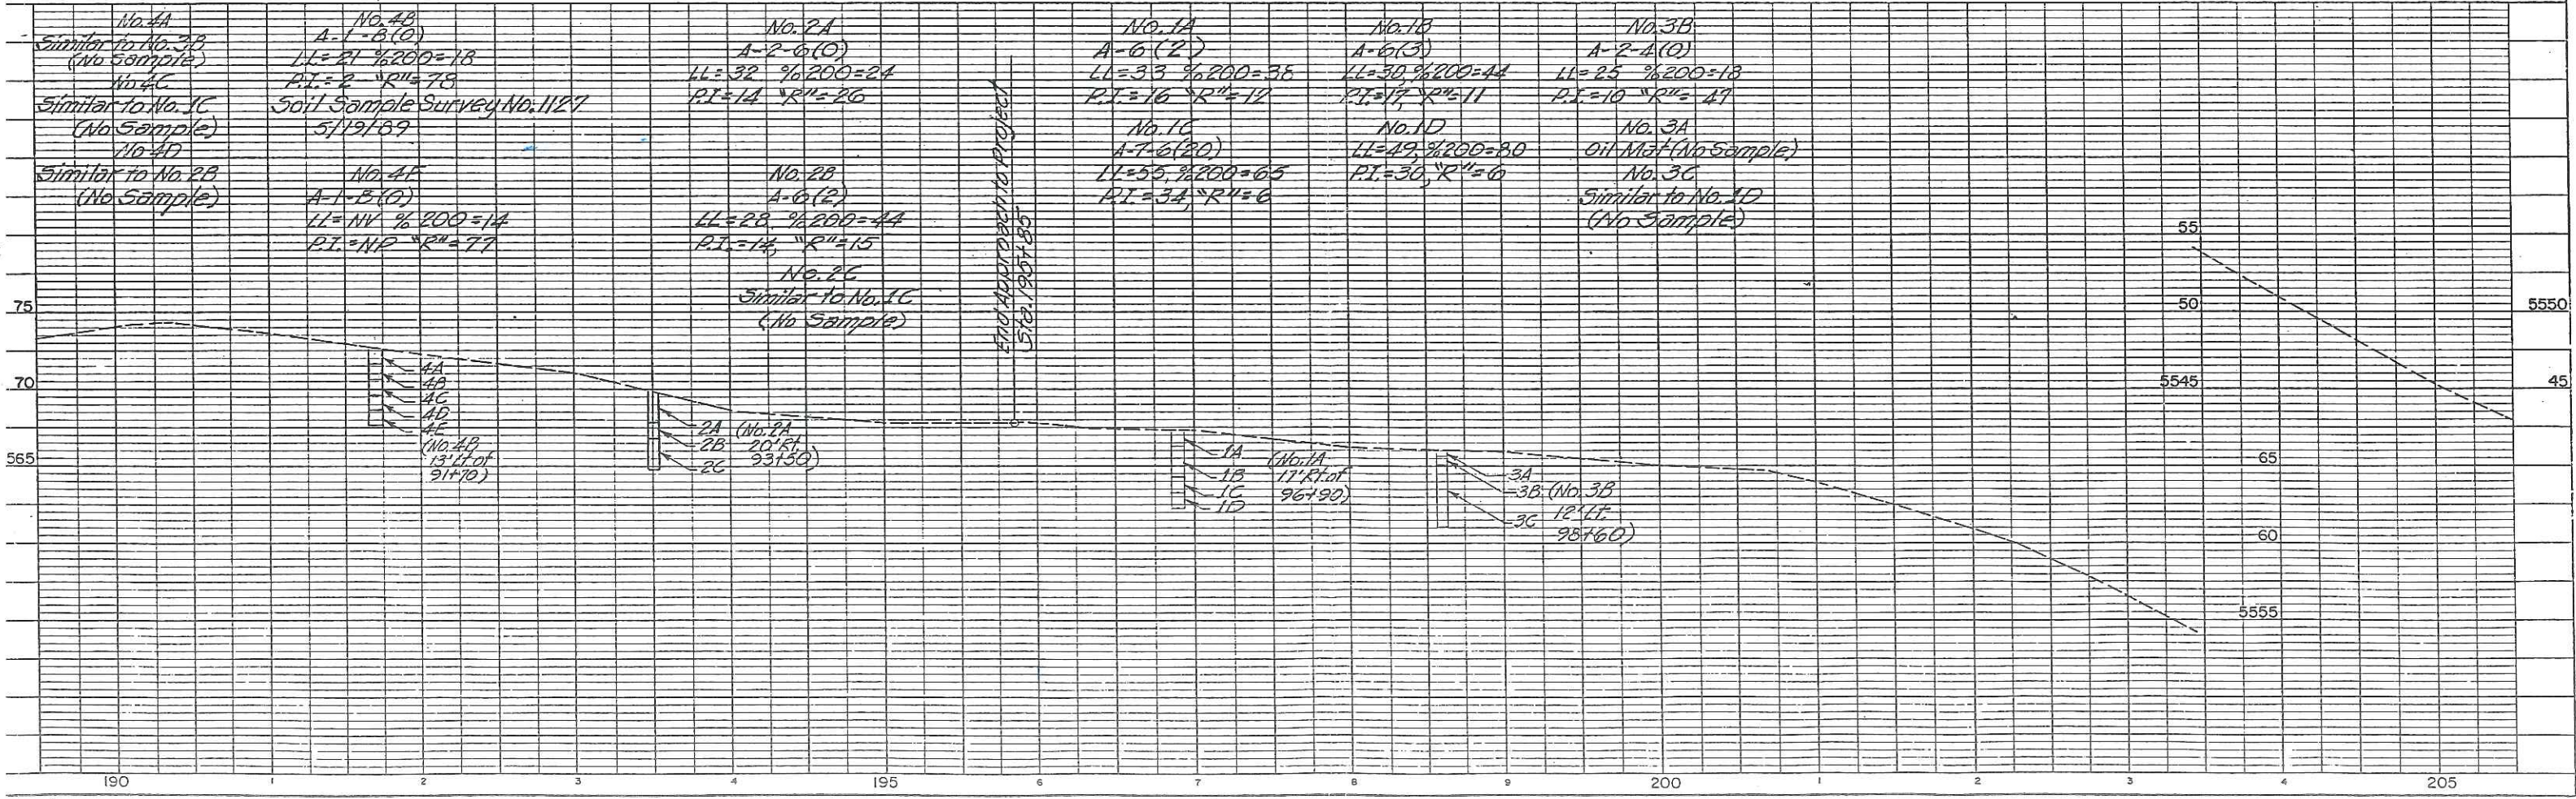 No. 4A
Similar to No. 3B
(No Sample)
No. 4C
Similar to No. 1C
(No Sample)
No 4D
Similar to No. 2B
(No Sample)
No. 4B
A-1-B(0)
LL=21 %200=18
P.I.=2 "R"=78
Soil Sample Survey No. 1127
5/19/89
A-1-B(0)
LL=NV %200=14
P.I.=NP "R"=77
No. 2A
A-2-6(0)
LL=32 %200=24
P.I=14 "R"=26
No. 2B
A-6(2)
LL=28, %200=44
P.I.=14, "R"=15
No. 2C
Similar to No. 1C
(No Sample)
End Approach to Project
Sta. 195+85
No. 1A
A-6(2)
LL=33 %200=38
P.I.=16 "R"=12
No. 1C
A-7-6(20)
LL=55, %200=65
P.I.=34, "R"=6
No. 1B
A-6(3)
LL=30, %200=44
P.I.=17, "R"=11
No. 1D
LL=49, %200=80
P.I.=30, "R"=6
No. 3B
A-2-4(0)
LL=25 %200=18
P.I.=10 "R"=47
No. 3A
Oil Mat (No Sample)
No. 3C
Similar to No. 1D
(No Sample)
75
70
565
4A
4B
4C
4D
4E
(No. 4B
13' Lt of
91+70)
2A (No. 2A
2B 20' Rt
2C 93+50)
1A (No. 1A
1B 17' Rt of
1C 96+90)
1D
3A
3B (No. 3B
3C 12' Lt.
98+60)
55
50
5545
5550
45
65
60
5555
190 1 2 3 4 195 6 7 8 9 200 1 2 3 4 205